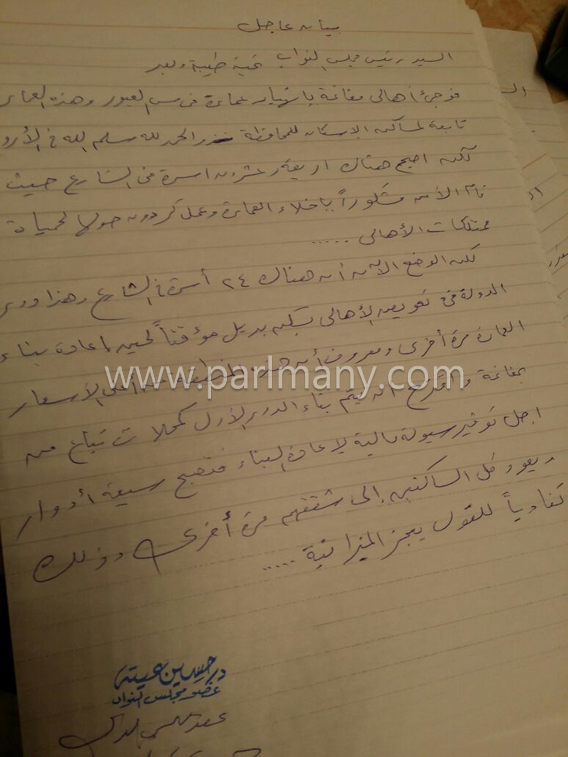 بيان عاجل
السيد رئيس مجلس النواب تحية طيبة وبعد
فوجئ أهالي مغاغة بانهيار عمارة في مساكن العبور وهذه العمار
تابعة لمساكن الإسكان للمحافظة والحمد لله سلم الله في الأرو
لكن أصبح هناك أربعة وعشرون أسرة في الشارع حيث
قام الأمن مشكوراً باخلاء العمارة وعمل كردون حولها لحماية
ممتلكات الأهالي .....
لكن الوضع الآن أن هناك ٢٤ أسرة في الشارع وهذا دور
الدولة في تعويض الأهالي بسكن بديل مؤقتاً لحين إعادة بناء
العمارة مرة أخرى ومعروف أن هذه الأسعار
www.parlmany.com
بمغاغة واقترح أن يتم بناء الدور الأول كمحلات تباع من
أجل توفير سيولة مالية لإعادة البناء فتصبح سبعة أدوار
ويعود كل الساكنين إلى شققهم مرة أخرى وذلك
تفادياً للقول بعجز الميزانية .....
عضو مجلس النواب
عضو مجلس النواب